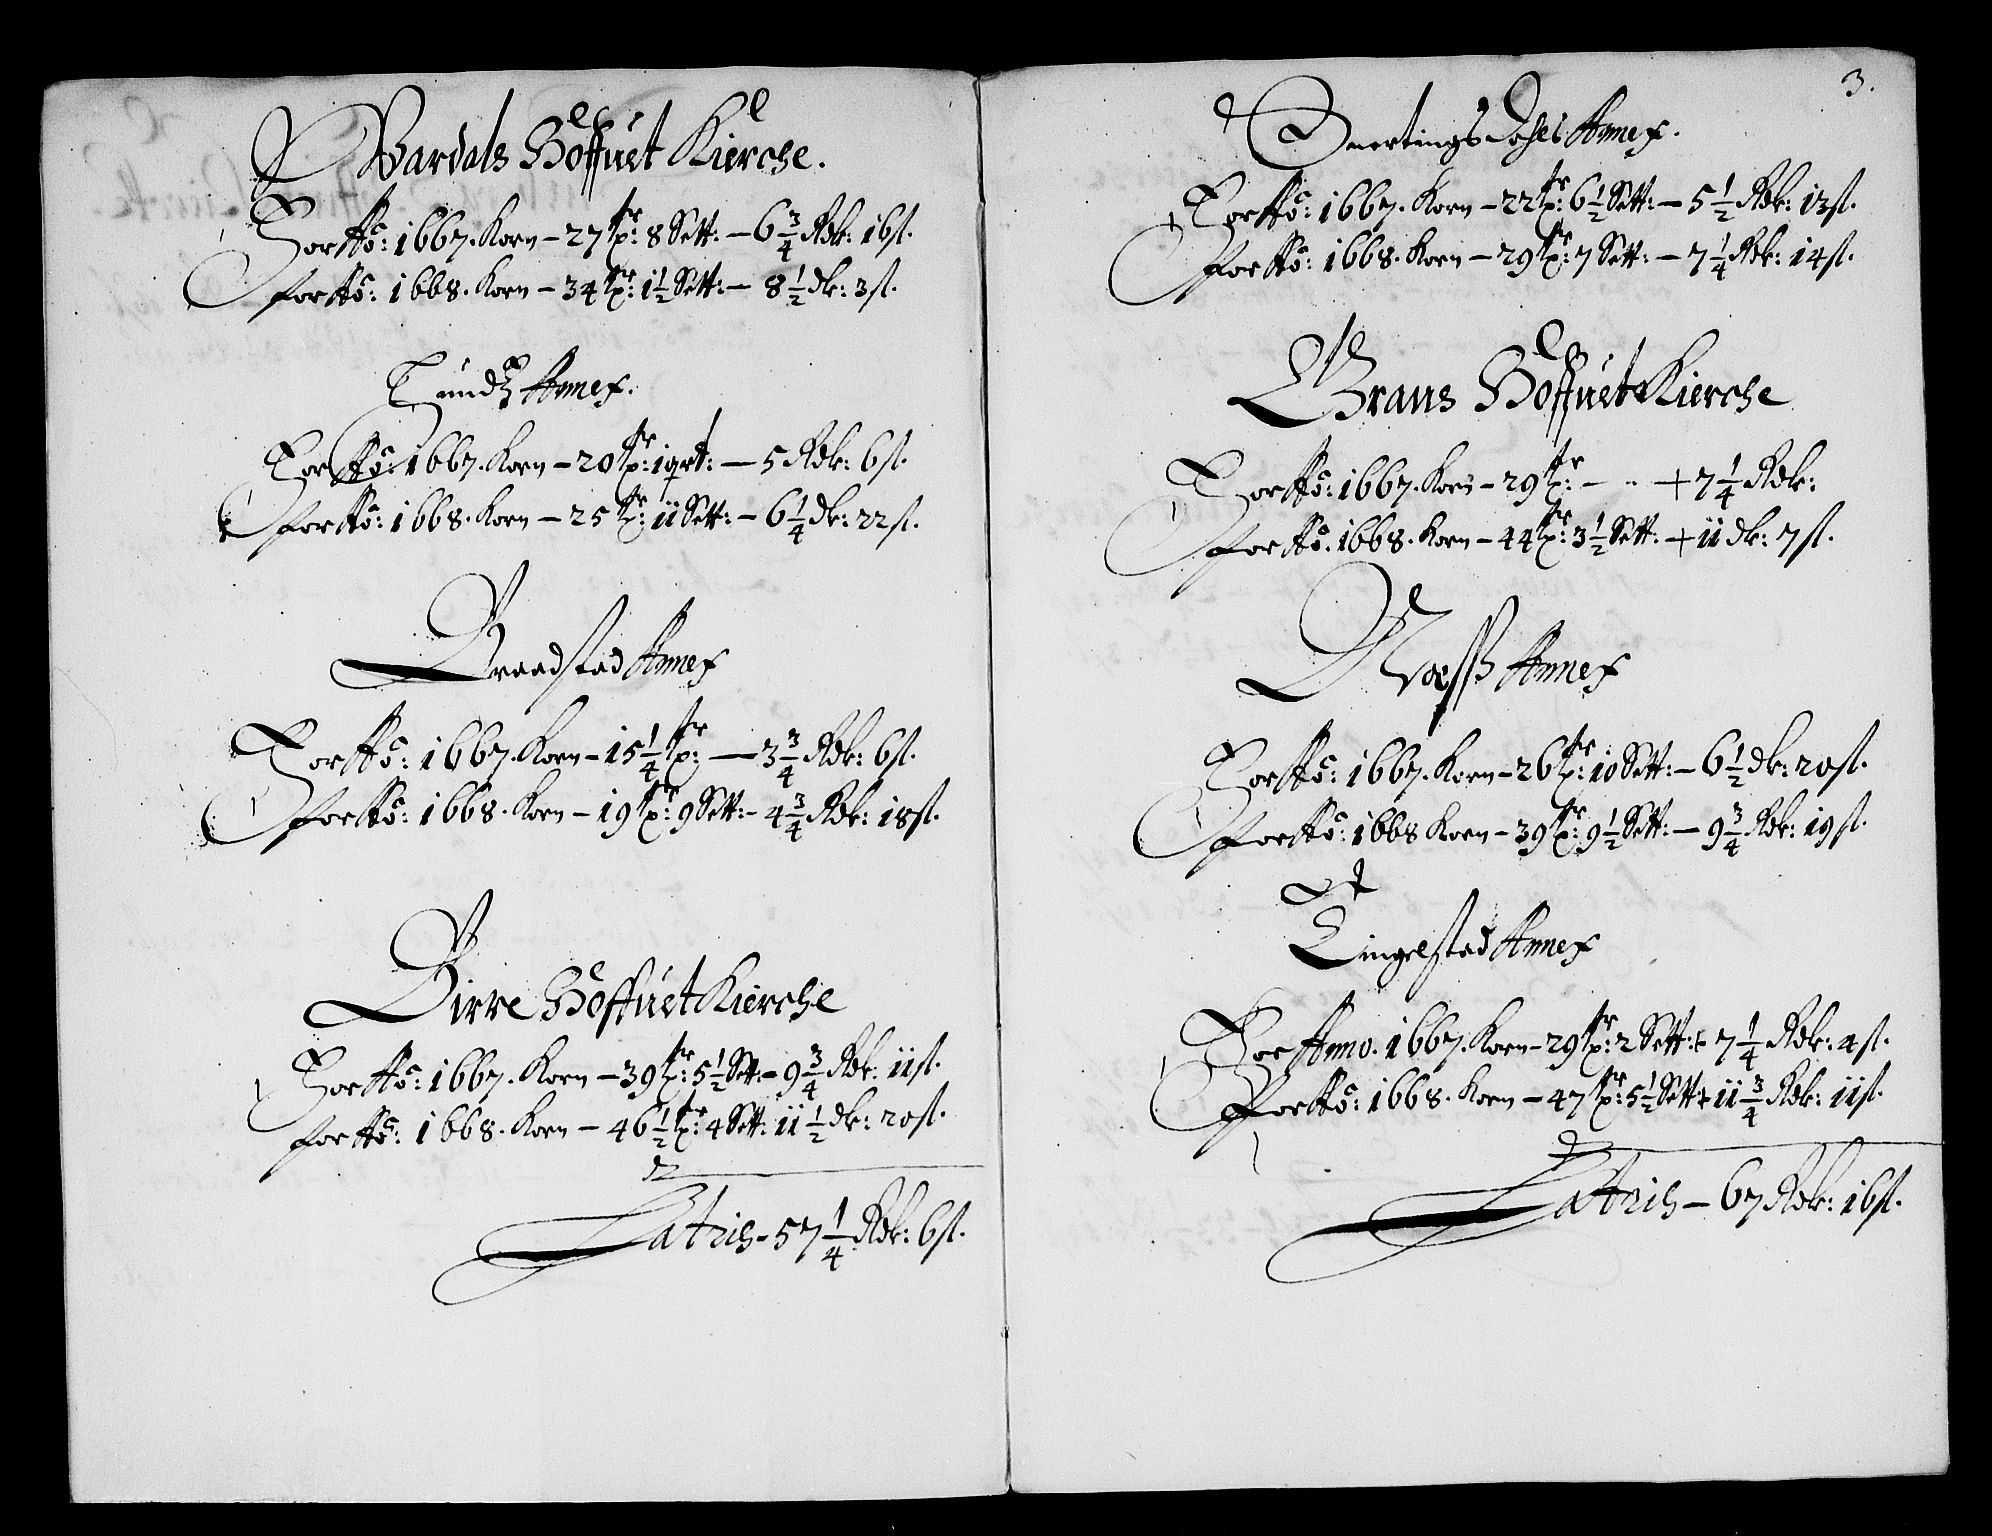 Wardals Hoffuet Kierche.
For Aô: 1667. Korn – 27 tr: 8 Sett: – 6 3/4 Rdr: 16 s.
for Aô: 1668. Korn – 34 tr: 1 1/2 Sett: – 8 1/2 dr: 3 s.
Hundz Annex.
For Aô: 1667. Korn – 20 tr: 1 qrt: – 5 Rdr: 6 s.
for Aô: 1668. Korn – 25 tr: 11 Sett: – 6 1/4 dr: 22 s.
Breedsted Annex
For Aô: 1667. Korn – 15 1/4 tr: – 3 3/4 Rdr: 6 s.
for Aô: 1668. Korn – 19 tr: 9 Sett: – 4 3/4 Rdr: 18 s.
Birre Hoffuet Kierche
For Aô: 1667. Korn – 39 tr: 5 1/2 Sett: – 9 3/4 Rdr: 11 s.
for Aô: 1668. Korn – 46 1/2 tr: 4 Sett: 11 1/2 dr: 20 s.
Latris – 57 1/4 Rdr: 6 s.
3.
Snertings Annex.
For Aô: 1667. Korn – 22 tr: 6 1/2 Sett: – 5 1/2 Rdr: 13 s.
for Aô: 1668. Korn – 29 tr: 7 Sett: – 7 1/4 Rdr: 14 s.
Grans Hoffuet Kierche
For Aô: 1667. Korn – 29 tr: – – 7 1/4 Rdr:
for Aô: 1668. Korn – 44 tr: 3 1/2 Sett: – 11 dr: 7 s.
Næss Annex
For Aô: 1667. Korn – 26 tr: 10 Sett: – 6 1/2 dr: 20 s.
for Aô: 1668 Korn – 39 tr: 9 1/2 Sett: – 9 3/4 Rdr: 19 s.
Tingelsted Annex
For Anno. 1667. Korn – 29 tr: 2 Sett: 7 1/4 Rdr: 4 s.
for Aô: 1668. Korn – 47 tr: 5 1/2 Sett 11 3/4 Rdr: 11 s.
Latris – 67 Rdr: 16 s.